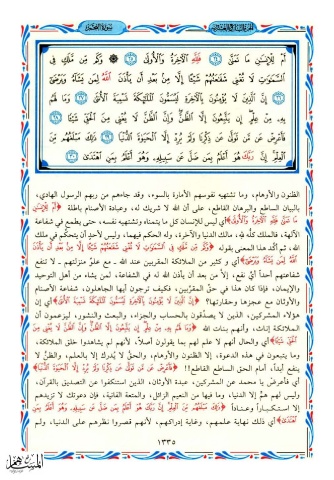 الجزء السابع والعشرون سورة النجم
أَمْ لِلْإِنسَٰنِ مَا تَمَنَّىٰ ٢٤ فَلِلَّهِ الْآخِرَةُ وَالْأُولَىٰ ٢٥ وَكَم مِّن مَّلَكٍ فِي
السَّمَٰوَٰتِ لَا تُغْنِي شَفَٰعَتُهُمْ شَيْئًا إِلَّا مِن بَعْدِ أَن يَأْذَنَ اللَّهُ لِمَن يَشَآءُ وَيَرْضَىٰ
٢٦ إِنَّ الَّذِينَ لَا يُؤْمِنُونَ بِالْآخِرَةِ لَيُسَمُّونَ الْمَلَٰٓئِكَةَ تَسْمِيَةَ الْأُنثَىٰ ٢٧ وَمَا لَهُم
بِهِ مِنْ عِلْمٍ إِن يَتَّبِعُونَ إِلَّا الظَّنَّ وَإِنَّ الظَّنَّ لَا يُغْنِي مِنَ الْحَقِّ شَيْئًا ٢٨
فَأَعْرِضْ عَن مَّن تَوَلَّىٰ عَن ذِكْرِنَا وَلَمْ يُرِدْ إِلَّا الْحَيَوٰةَ الدُّنْيَا ٢٩ ذَٰلِكَ مَبْلَغُهُم مِّنَ
الْعِلْمِ إِنَّ رَبَّكَ هُوَ أَعْلَمُ بِمَن ضَلَّ عَن سَبِيلِهِ وَهُوَ أَعْلَمُ بِمَنِ اهْتَدَىٰ ٣٠
الظنون والأوهام، وما تشتهيه نفوسهم الأمارة بالسوء، وقد جاءهم من ربهم الرسول الهادي،
بالبيان الساطع والبرهان القاطع، على أن الله لا شريك له، وعبادة الأصنام باطلة ﴿أَمْ لِلْإِنسَٰنِ
مَا تَمَنَّىٰ فَلِلَّهِ الْآخِرَةُ وَالْأُولَىٰ﴾ أي ليس للإنسان كل ما يتمناه وتشتهيه نفسه، حتى يطمع في شفاعة
الآلهة، فالملك كلُّه لله، مالك الدنيا والآخرة، وله الحكم فيهما، وليس لأحدٍ أن يتحكَّم في ملك
الله، ثم أكَّد هذا المعنى بقوله ﴿وَكَم مِّن مَّلَكٍ فِي السَّمَٰوَٰتِ لَا تُغْنِي شَفَٰعَتُهُمْ شَيْئًا إِلَّا مِن بَعْدِ أَن يَأْذَنَ
اللَّهُ لِمَن يَشَآءُ وَيَرْضَىٰ﴾ أي وكثير من الملائكة المقربين عند الله ـ مع علو منزلتهم ـ لا تنفع
شفاعتهم أحداً أيَّ نفع، إلاَّ من بعد أن يأذن الله له في الشفاعة، لمن يشاء من أهل التوحيد
والإيمان، فإذا كان هذا في حقِّ المقربين، فكيف ترجون أيها الجاهلون، شفاعة الأصنام
والأوثان مع عجزها وحقارتها؟ ﴿إِنَّ الَّذِينَ لَا يُؤْمِنُونَ بِالْآخِرَةِ لَيُسَمُّونَ الْمَلَٰٓئِكَةَ تَسْمِيَةَ الْأُنثَىٰ﴾ أي إن
هؤلاء المشركين، الذين لا يصدِّقون بالحساب والجزاء، والبعث والنشور، ليزعمون أن
الملائكة إناث، وأنهم بنات الله ﴿وَمَا لَهُم بِهِ مِنْ عِلْمٍ إِن يَتَّبِعُونَ إِلَّا الظَّنَّ وَإِنَّ الظَّنَّ لَا يُغْنِي مِنَ الْحَقِّ
شَيْئًا﴾ أي والحال أنهم لا علم لهم بما يقولون أصلاً، لأنهم لم يشاهدوا خلق الملائكة،
وما يتبعون في هذه الدعوة، إلا الظنون والأوهام، والحقُّ لا يُدرك إلا بالعلم، والظنُّ لا
ينفع أبداً أمام الحق الساطع القاطع!! ﴿فَأَعْرِضْ عَن مَّن تَوَلَّىٰ عَن ذِكْرِنَا وَلَمْ يُرِدْ إِلَّا الْحَيَوٰةَ الدُّنْيَا﴾
أي فأعرضْ يا محمد عن المشركين، عبدة الأوثان، الذين استنكفوا عن التصديق بالقرآن،
وليس لهم همٌّ إلا الدنيا، وما فيها من النعيم الزائل، والمتعة الفانية، فإن دعوتك لا تزيدهم
إلا استكباراً وعناداً ﴿ذَٰلِكَ مَبْلَغُهُم مِّنَ الْعِلْمِ إِنَّ رَبَّكَ هُوَ أَعْلَمُ بِمَن ضَلَّ عَن سَبِيلِهِ وَهُوَ أَعْلَمُ بِمَنِ
اهْتَدَىٰ﴾ أي ذلك نهاية علمهم، وغاية إدراكهم، لأنهم قصروا نظرهم على الدنيا، ولم
١٣٣٥